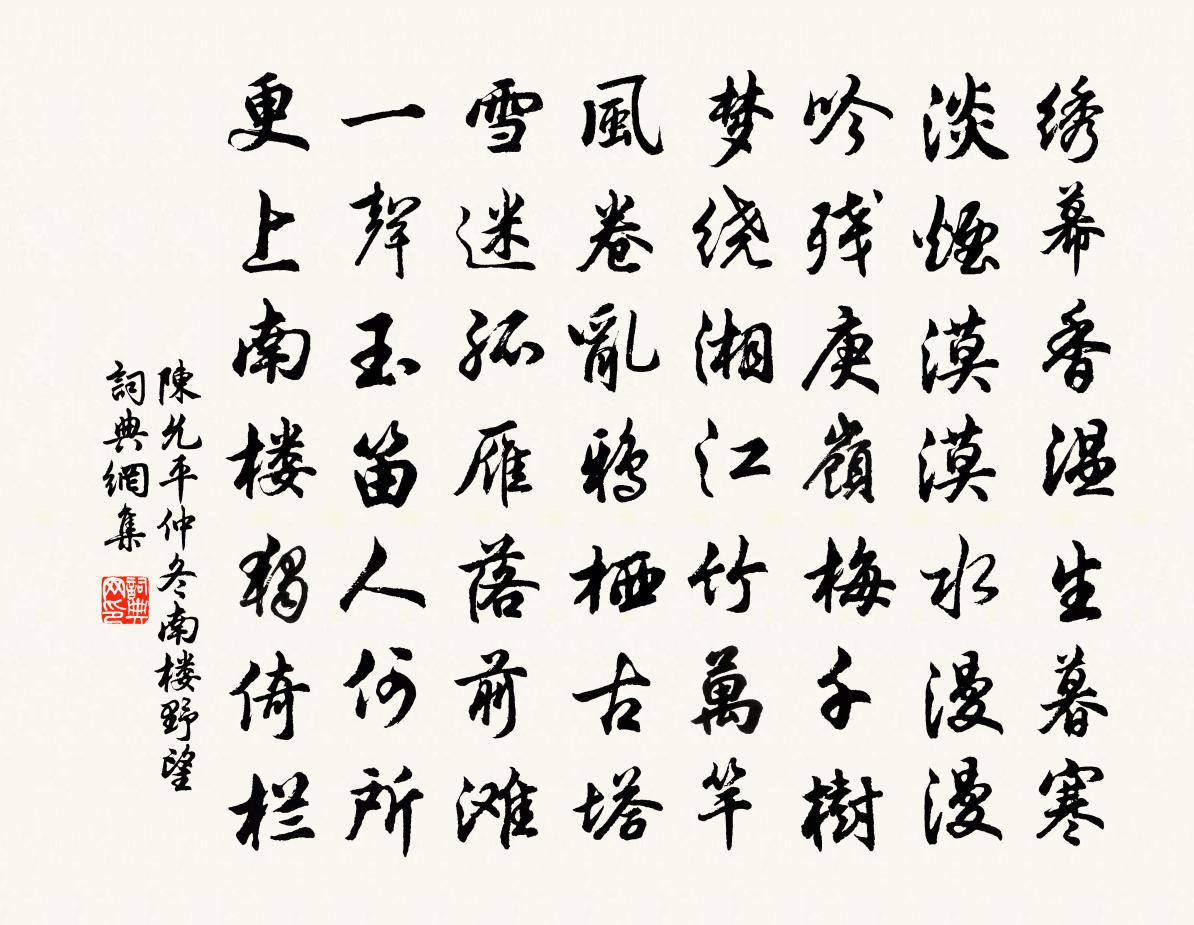 绣幕香温生暮寒
淡烟漠漠水漫漫
吟残庾嶺梅千樹
梦绕湘江竹萬竿
風卷亂鴉栖古塔
雪迷孤雁落前滩
一聲玉笛人何所
更上南楼独倚栏
陳允平仲冬南楼野望
詞典網集
詞典网印